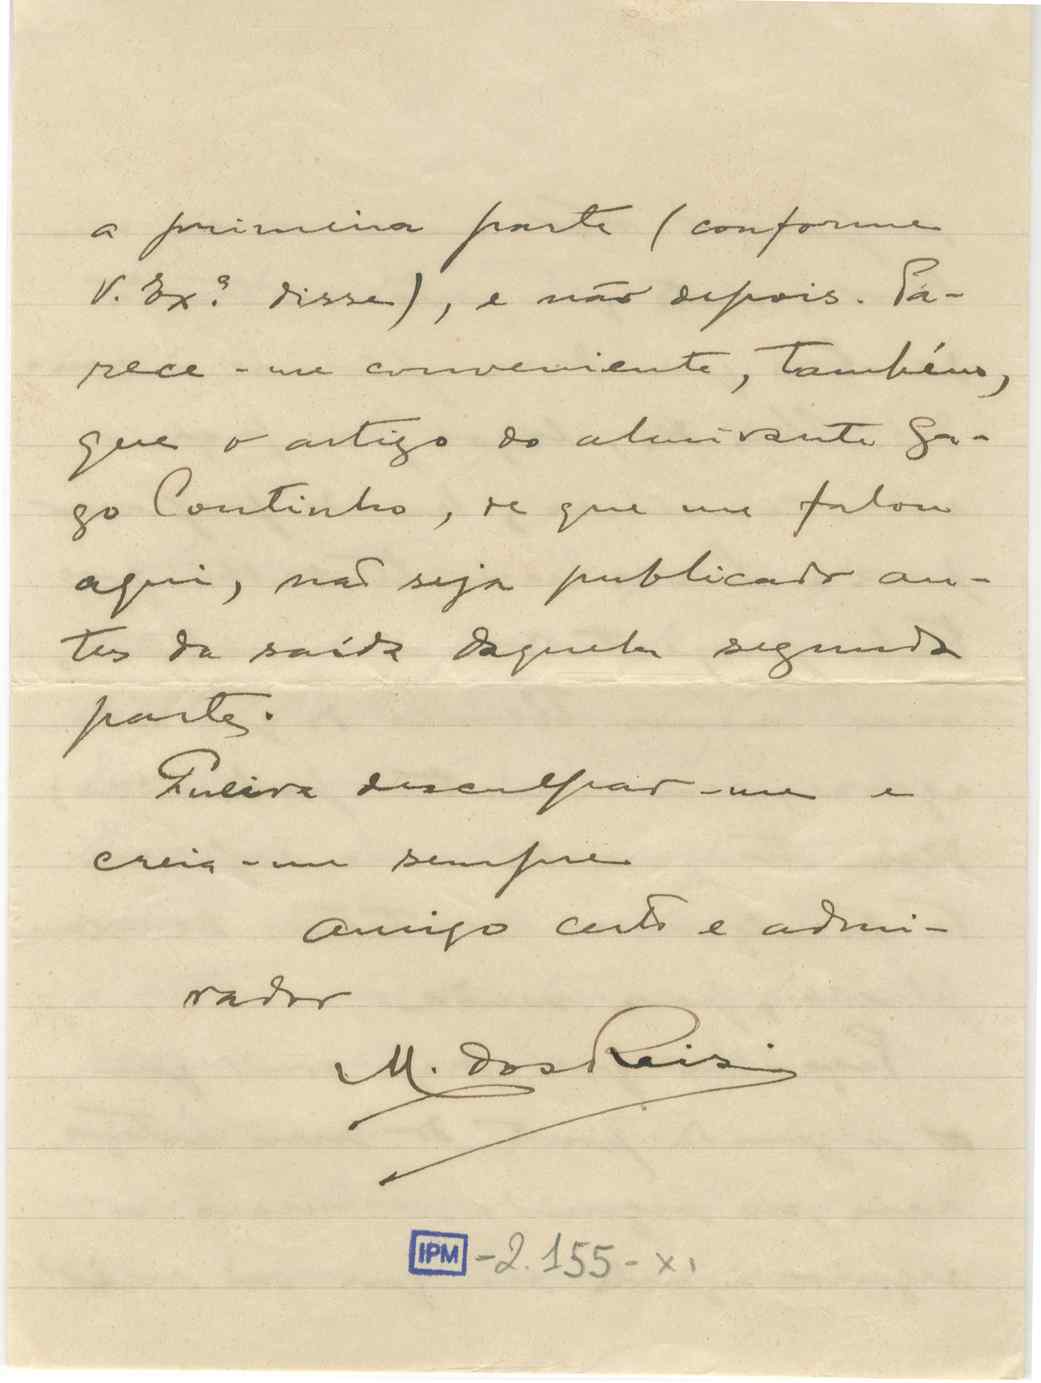 a primeira parte (conforme
V. Exª. disse), e não depois. Pa-
rece-me conveniente, também,
que o artigo do almirante Ga-
go Coutinho, de que me falou
aqui, não seja publicado an-
tes da saída daquela segunda
parte.
Queira desculpar-me e
creia-me sempre
amigo certo e admi-
rador
M. dos Reis
IPM -2.155-XI